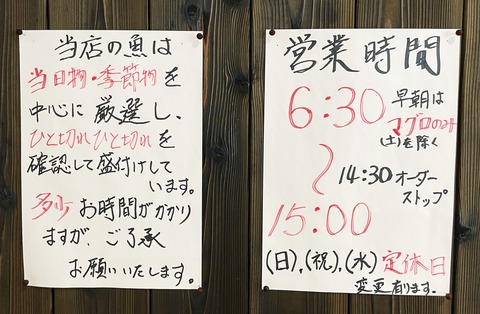 当店の魚は
当日物・季節物を
中心に厳選し、
ひと切れひと切れを
確認して盛付けして
います。
多少お時間がかかり
ますが、ご了承
お願いいたします。
営業時間
6:30 早朝は
マグロのみ
(土)を除く
〜 14:30オーダー
ストップ
15:00
(日),(祝),(水)定休日
変更有ります。